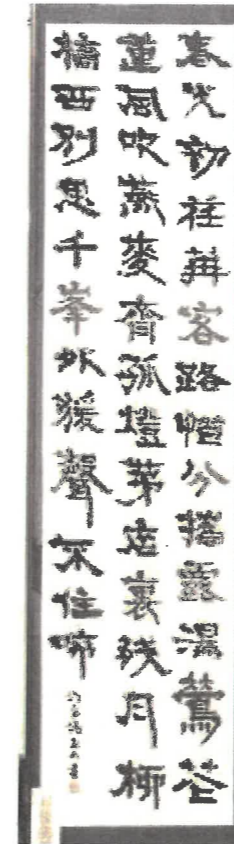 春光初荏苒客路惜分攜露濕鶯花
重風吹燕麥齊孤燈茅店裏殘月柳
橋西別思千峯外猿聲不住啼